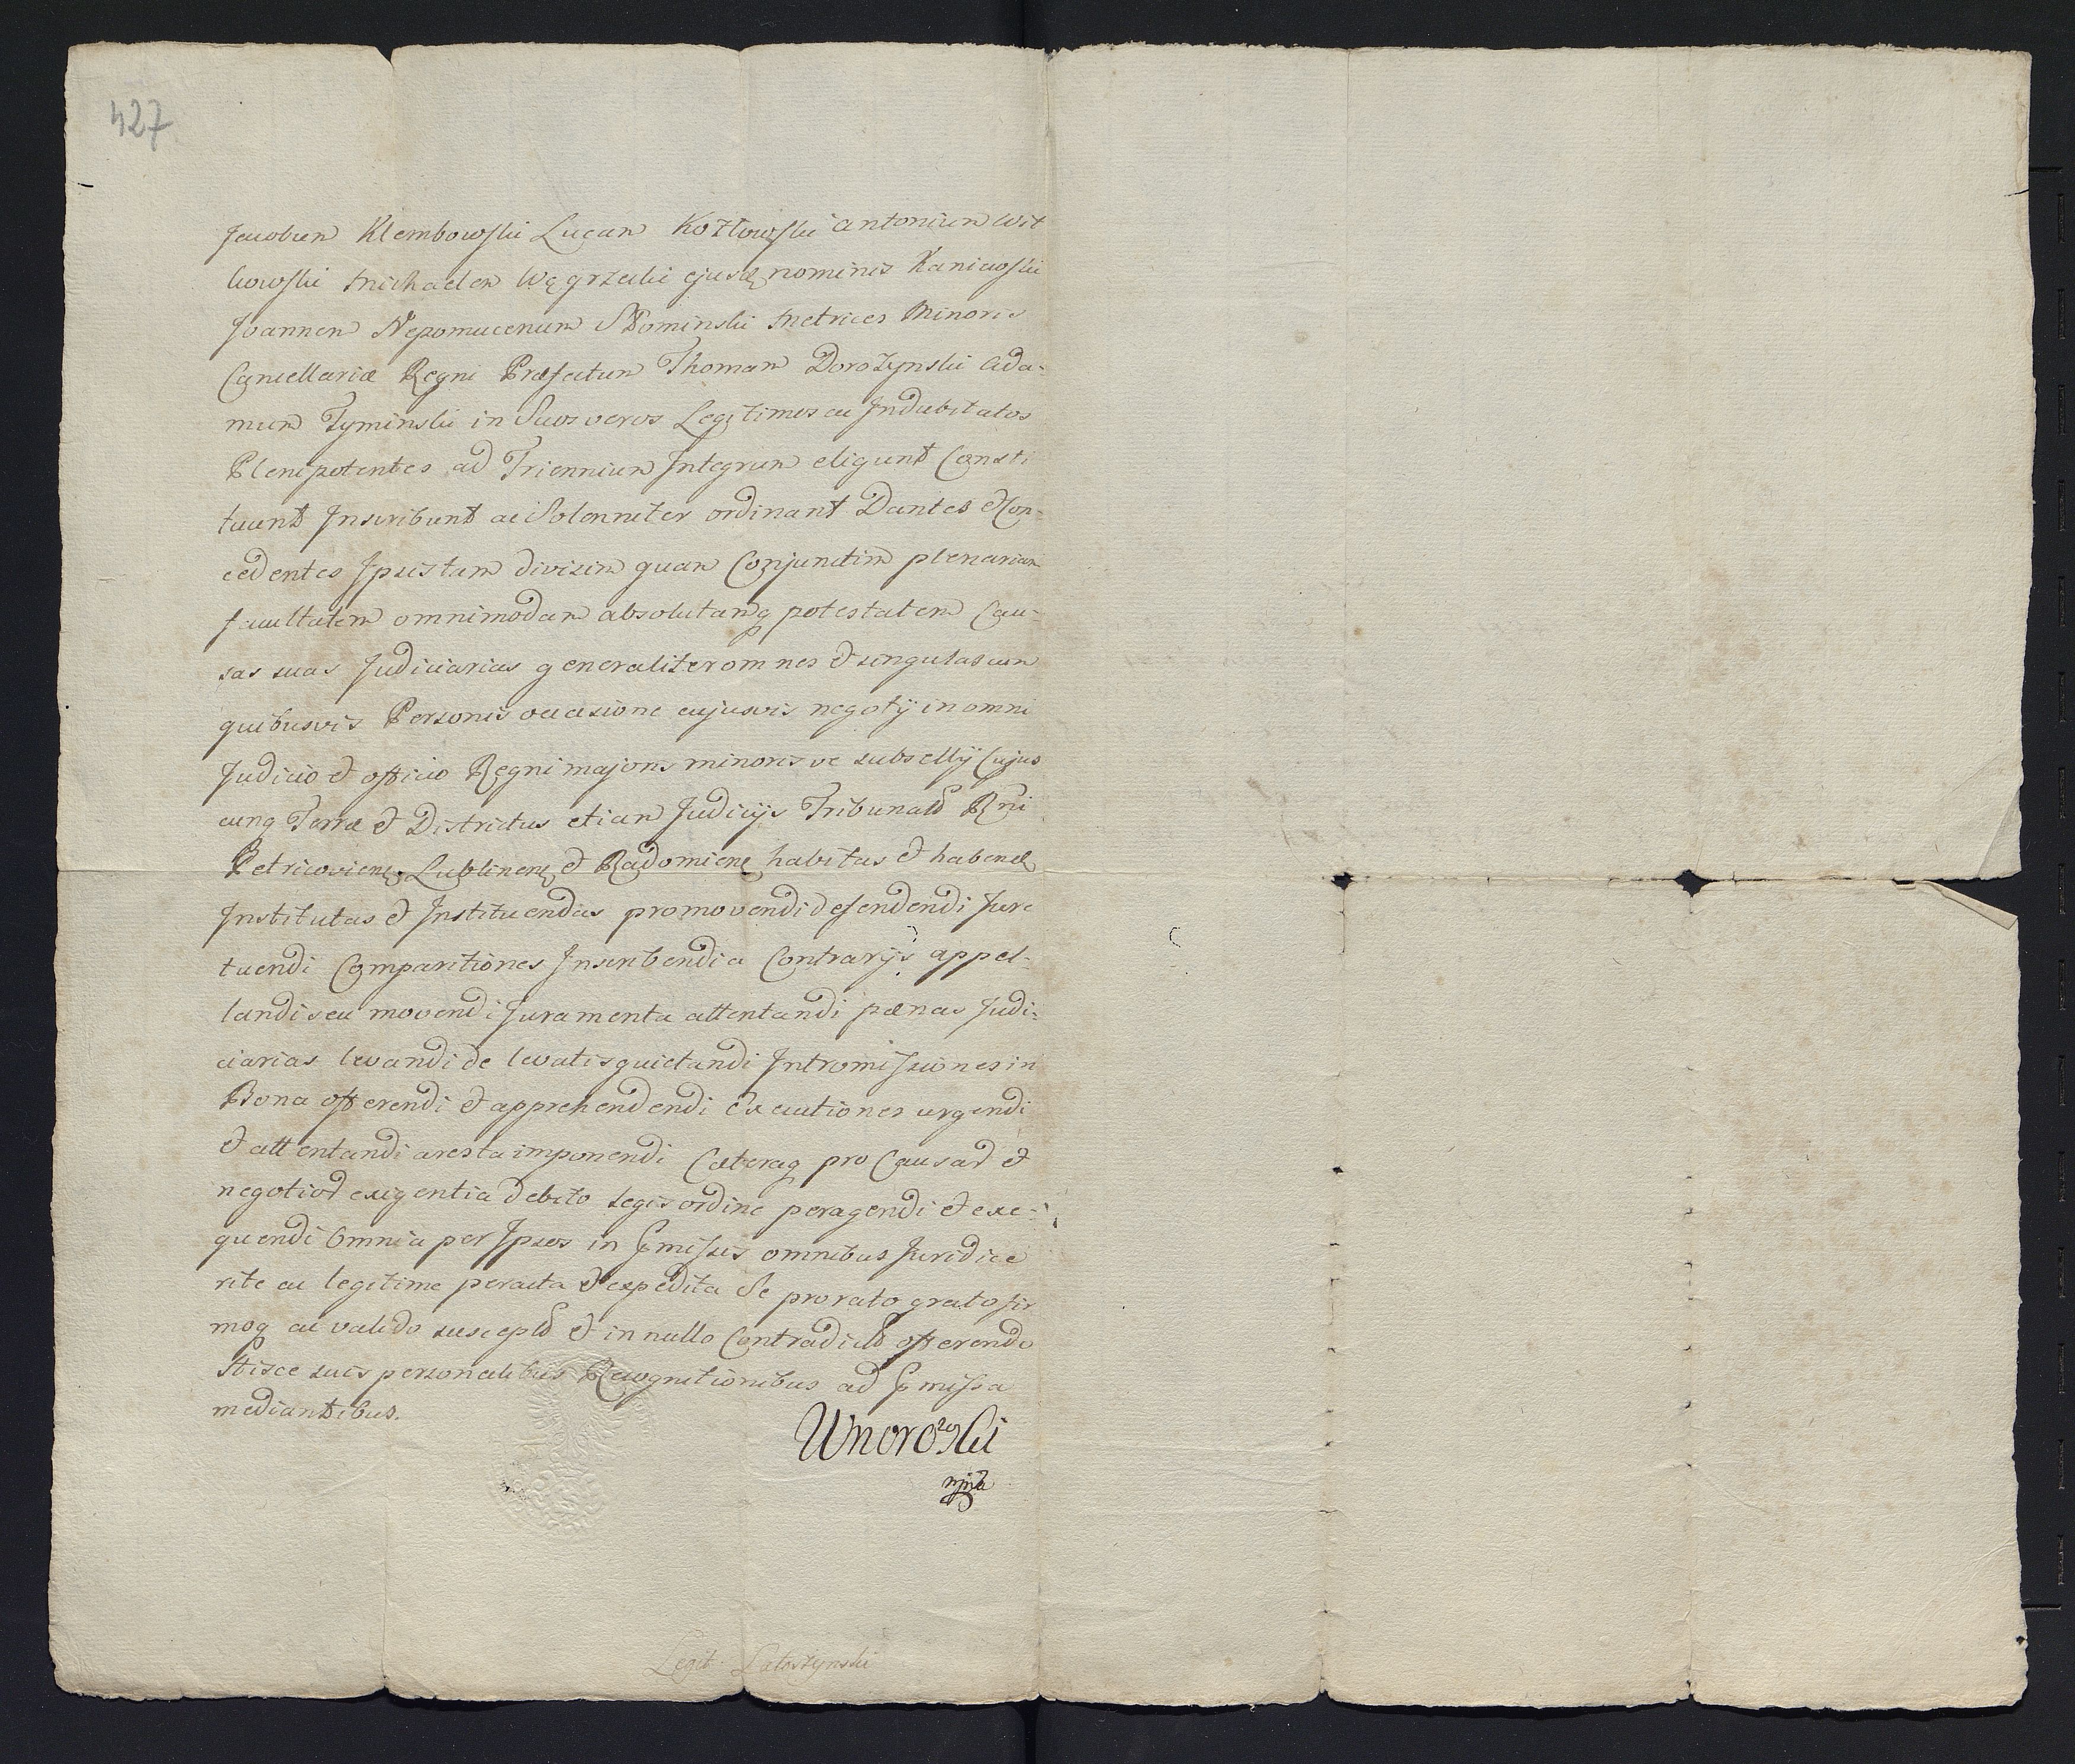 427
Jacobum Klembowski Lucam Kozłowski Antonium Wit
kowski Michaelem Węgrzecki ejusd nominis Kaniewski
Joannem Nepomucenum Słominski Metrices Minoris
Cancellariæ Regni Præfectum Thomam Dorożynski Ada-
mum Tyminski in Suos veros Legitimos ac Indubitatos
Plenipotentes ad Triennium Integrum eligunt Consti
tuunt Inscribunt ac Solenniter ordinant Dantes et Con-
cedentes Ipsis tam divisim quam Conjunctim plenariam
facultatem omnimodam absolutamq potestatem Cau-
sas suas Judiciarias generaliter omnes et singulas cum
quibusvis Personis occasione cujusvis negotij in omni
Judicio et officio Regni majoris minoris ve subsellij Cujus
cunq Terræ et Districtus etiam Judicijs Tribunalb Rni
Petricovien Lublinen et Radomien habitas et habend
Institutas et Instituendas promovendi defendendi Jure
tuendi Comparitiones Inscribendi a Contrarijs appel-
landi seu movendi Juramenta attentandi pænas Judi-
ciarias levandi de levatis quietandi Intromissiones in
Bona offerendi et apprehendendi Executiones urgendi
et attentandi aresta imponendi Cæteraq pro Causar et
negotior exigentia debito legis ordine peragendi et exe-
quendi Omnia per Ipsos in Pmissis omnibus Juridice
rite ac legitime peracta et expedita Se pro rato grato fir
moq ac valido suscepto et in nullo Contradicto offerendo
Hisce suis personalibus Recognitionibus ad Pmissa
mediantibus.
Unorowski
mpria
Legit